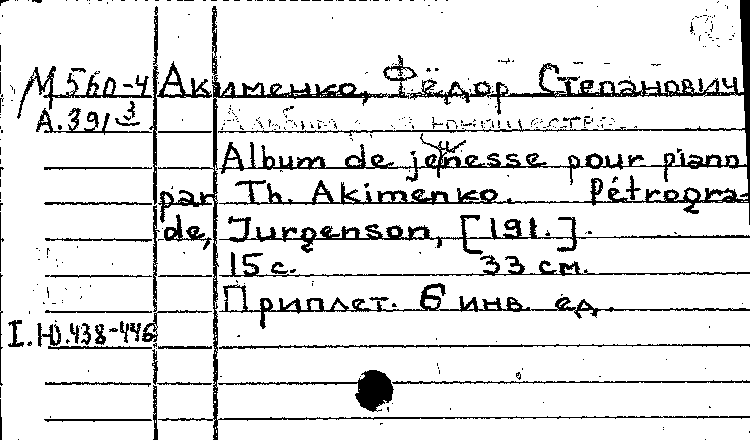 М 560-4 Акименко, Фёдор Степанович
А.391 3 Альбом для юношества.
Album de jeunesse pour piano
par Th. Akimenko. Pétrogra-
de, Jurgenson, [191.].
15 с. 33 см.
Приплет. 6 инв. ед.
I.Ю.438-446